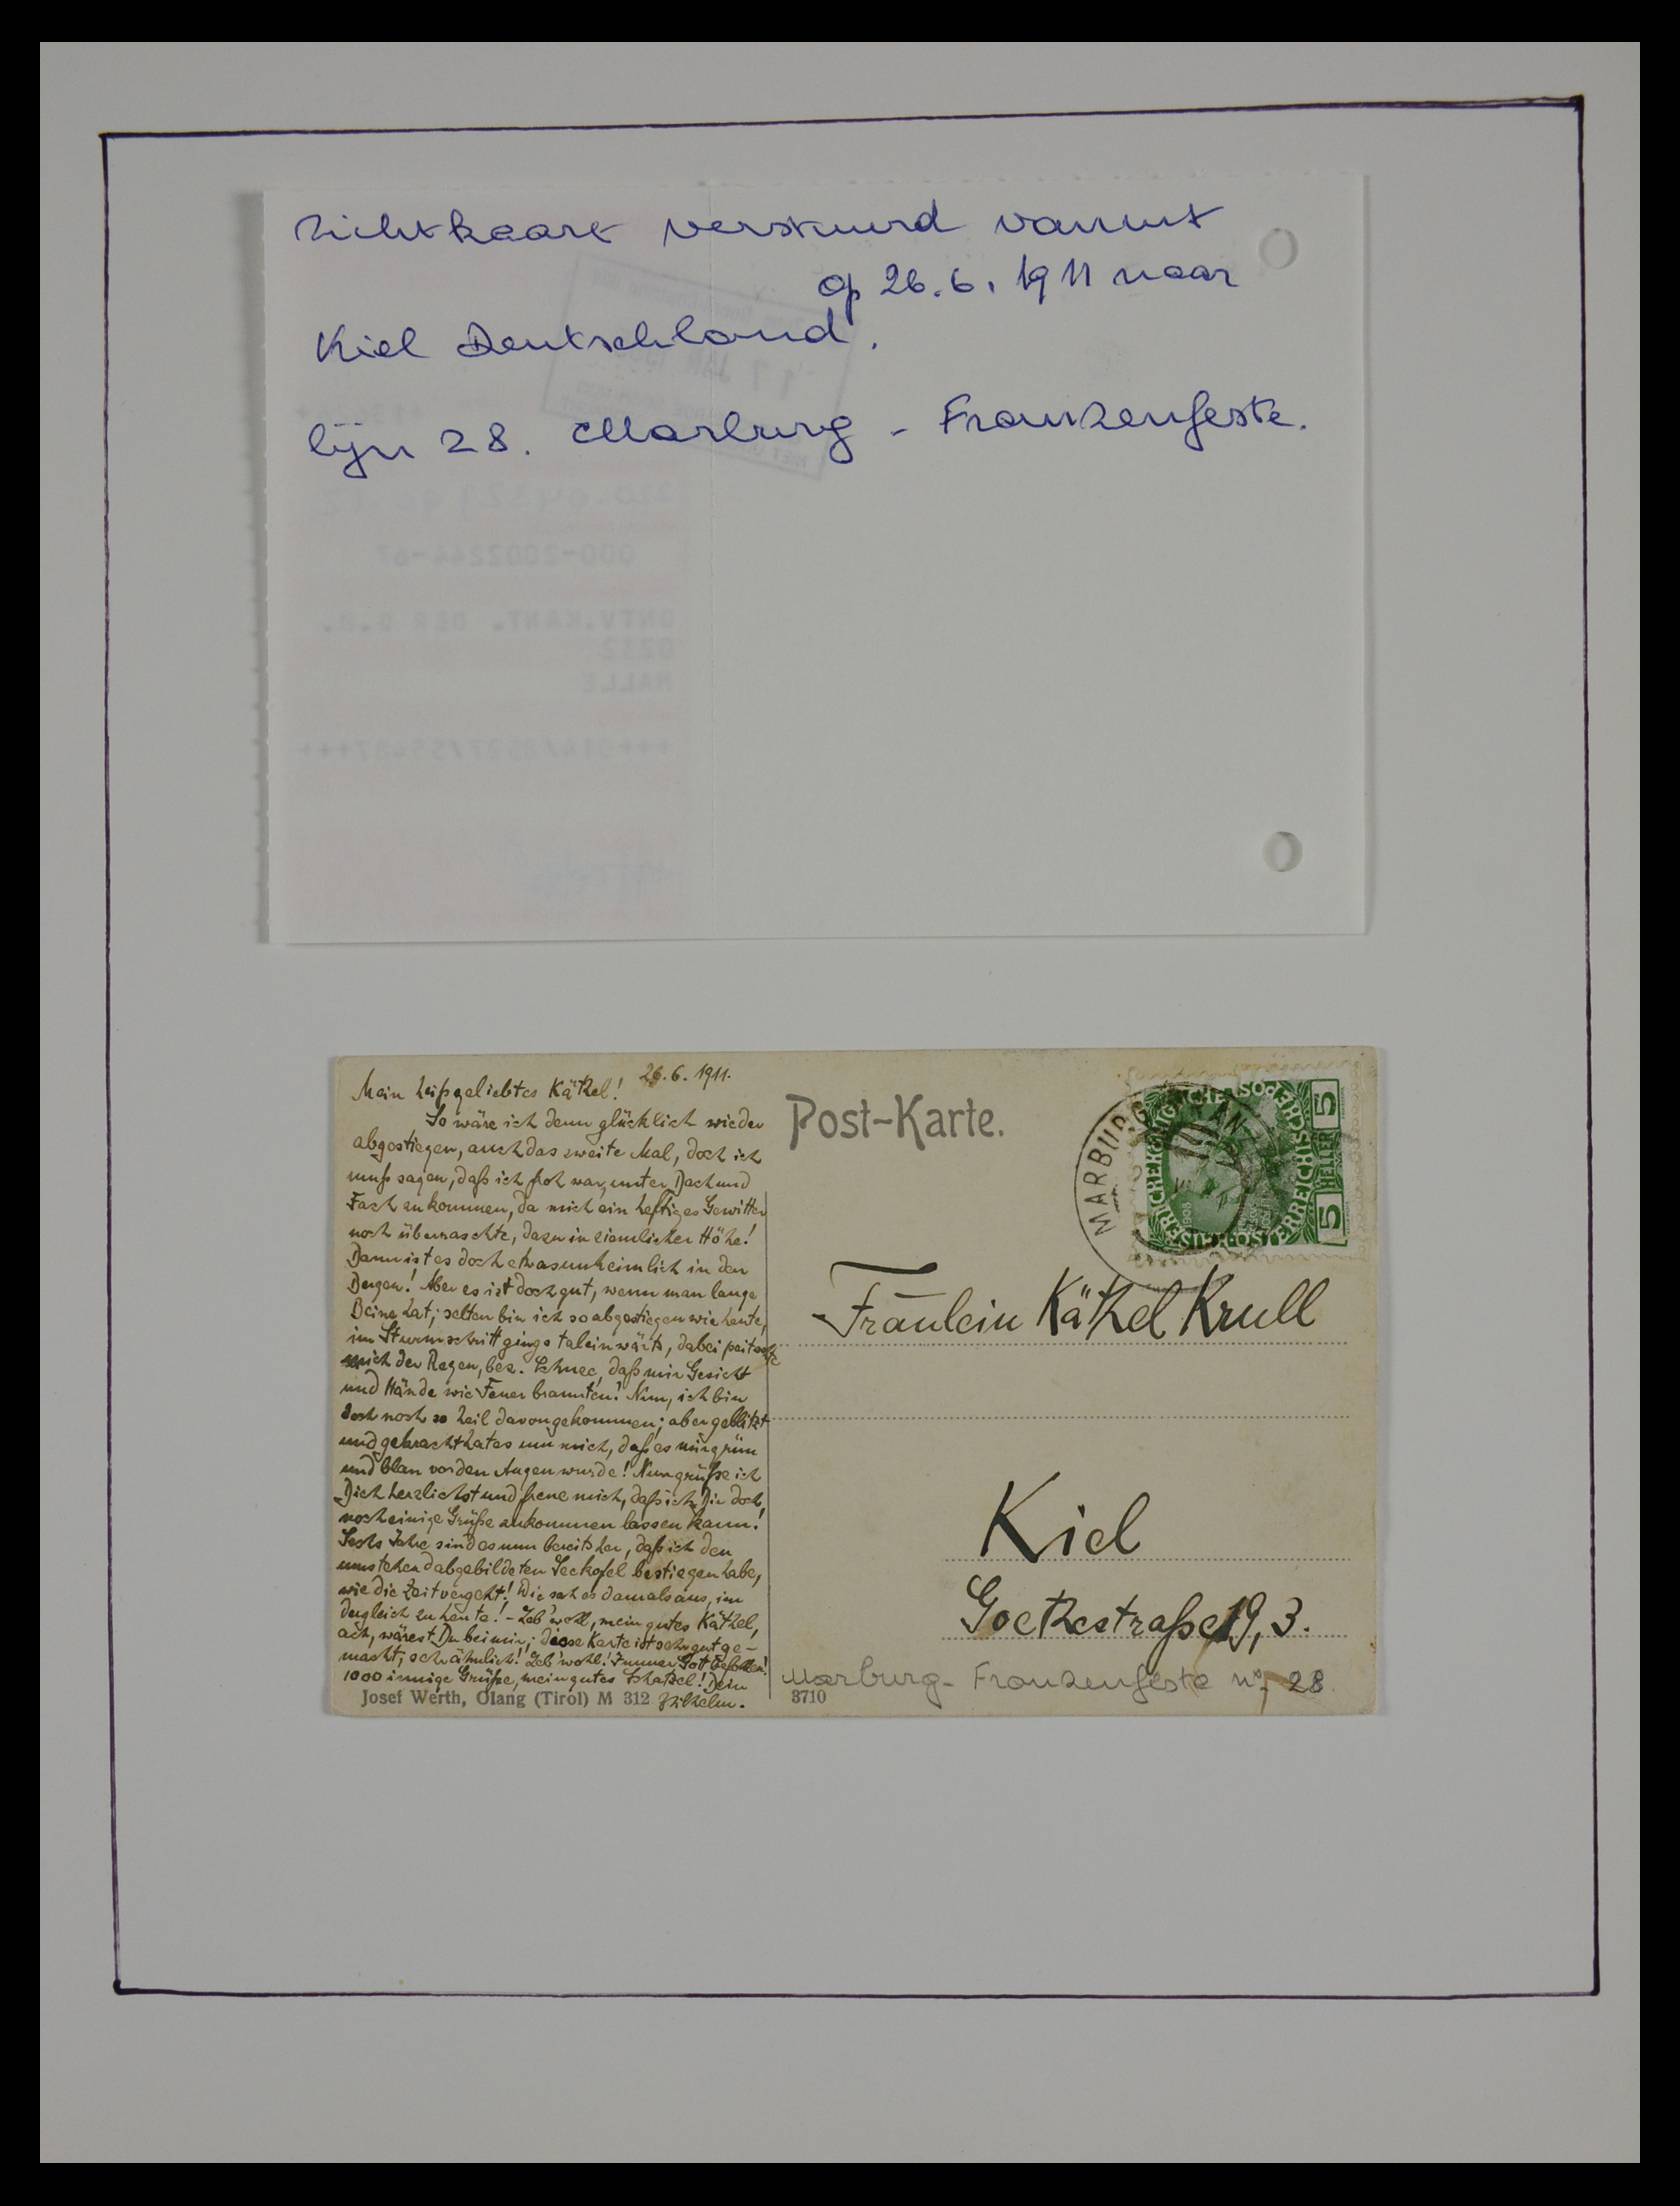 Zichtkaart verstuurd vanuit
op 26.6.1911 naar
Kiel Deutschland.
lijn 28. Marburg - Franzenfeste.
26.6.1911.
Mein heißgeliebtes Käthel!
So wäre ich denn glücklich wieder
abgestiegen, auch das zweite Mal, doch ich
muß sagen, daß ich froh war, unter Dach und
Fach zu kommen, da mich ein heftiges Gewitter
noch überraschte, dazu in ziemlicher Höhe!
Dann ist es doch etwas unheimlich in den
Bergen! Aber es ist doch gut, wenn man lange
Beine hat; selten bin ich so abgestiegen wie heute,
im Sturmschritt gings taleinwärts, dabei peitschte
mich der Regen, bez. Schnee, daß mir Gesicht
und Hände wie Feuer brannten! Nun, ich bin
doch noch so heil davongekommen; aber geblitzt
und gekracht hat es um mich, daß es mir grün
und blau vor den Augen wurde! Nun grüße ich
Dich herzlichst und freue mich, daß ich Dir doch
noch einige Grüße zukommen lassen kann!
Sechs Jahre sind es nun bereits her, daß ich den
umstehend abgebildeten Seekofel bestiegen habe,
wie die Zeit vergeht! Wie sah es damals aus, im
Vergleich zu heute! - Leb' wohl, mein gutes Käthel,
ach, wärest Du bei mir; diese Karte ist sehr gut ge-
macht, sehr ähnlich! Leb' wohl! Immer Gott befohlen!
1000 innige Grüße, mein gutes Schatzel! Dein
Wilhelm.
Josef Werth, Olang (Tirol) M 312
Post-Karte.
MARBURG
5 HELLER 5
Fräulein Käthel Krull
Kiel
Goethestraße 19, 3.
Marburg - Franzenfeste n° 28.
3710